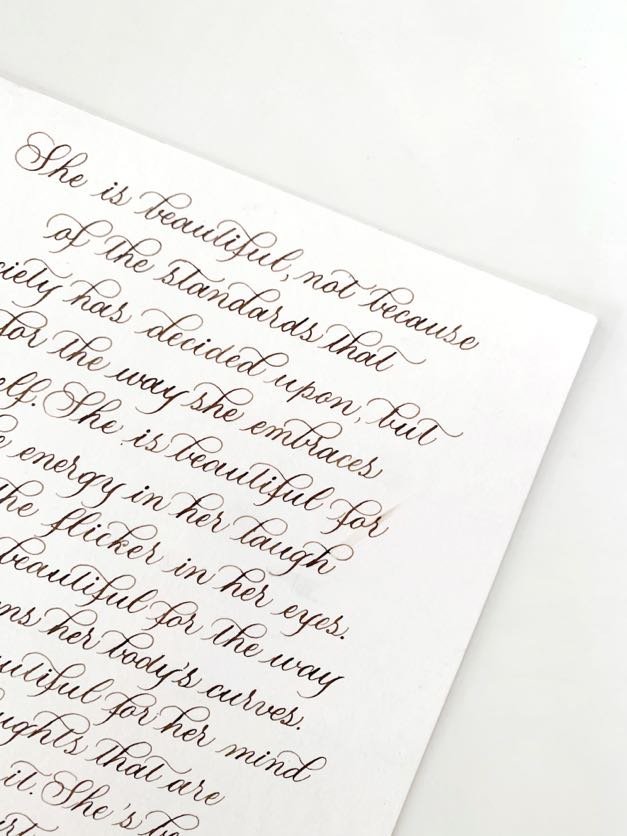 She is beautiful, not because
of the standards that
ciety has decided upon, but
for the way she embraces
elf. She is beautiful for
e energy in her laugh
the flicker in her eyes.
beautiful for the way
ns her body's curves.
utiful for her mind
ughts that are
it. She's be
rt